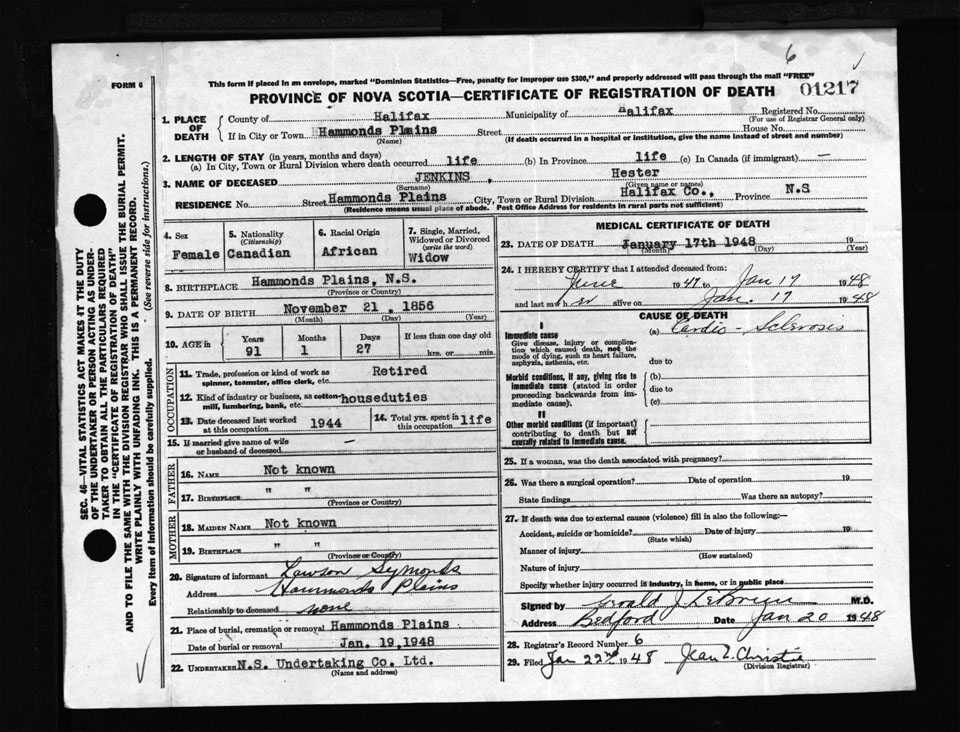 6
FORM 6
This form if placed in an envelope, marked "Dominion Statistics—Free, penalty for improper use $300," and properly addressed will pass through the mail "FREE"
01217
PROVINCE OF NOVA SCOTIA—CERTIFICATE OF REGISTRATION OF DEATH
1. PLACE OF DEATH
County of Halifax Municipality of Halifax Registered No.
(For use of Registrar General only)
If in City or Town Hammonds Plains Street House No.
(Name) (If death occurred in a hospital or institution, give the name instead of street and number)
2. LENGTH OF STAY (in years, months and days)
(a) In City, Town or Rural Division where death occurred life (b) In Province life (c) In Canada (if immigrant) —
3. NAME OF DECEASED JENKINS , Hester
(Surname) (Given name or names)
RESIDENCE No. Street Hammonds Plains City, Town or Rural Division Halifax Co., Province N.S
(Residence means usual place of abode. Post Office Address for residents in rural parts not sufficient)
4. Sex
Female
5. Nationality
(Citizenship)
Canadian
6. Racial Origin
African
7. Single, Married, Widowed or Divorced
(write the word)
Widow
8. BIRTHPLACE Hammonds Plains, N.S.
(Province or Country)
9. DATE OF BIRTH November 21, 1856
(Month) (Day) (Year)
10. AGE in
Years Months Days If less than one day old
91 1 27 hrs. or min.
OCCUPATION
11. Trade, profession or kind of work as Retired
spinner, teamster, office clerk, etc.
12. Kind of industry or business, as cotton- houseduties
mill, lumbering, bank, etc.
13. Date deceased last worked at this occupation 1944
14. Total yrs. spent in this occupation life
15. If married give name of wife or husband of deceased —
FATHER
16. NAME Not known
17. BIRTHPLACE " "
(Province or Country)
MOTHER
18. MAIDEN NAME Not known
19. BIRTHPLACE " "
(Province or Country)
20. Signature of informant Lawson Symonds
Address Hammonds Plains
Relationship to deceased none
21. Place of burial, cremation or removal Hammonds Plains
Date of burial or removal Jan. 19, 1948
22. UNDERTAKER N.S. Undertaking Co. Ltd.
(Name and address)
MEDICAL CERTIFICATE OF DEATH
23. DATE OF DEATH January 17th 1948 19
(Month) (Day) (Year)
24. I HEREBY CERTIFY that I attended deceased from:
June 1947 to Jan 17 1948
and last saw her alive on Jan. 17 1948
CAUSE OF DEATH
I
Immediate cause
Give disease, injury or complication which caused death, not the mode of dying, such as heart failure, asphyxia, asthenia, etc.
(a) Cardio-Sclerosis
due to
Morbid conditions, if any, giving rise to immediate cause (stated in order proceeding backwards from immediate cause).
(b)
due to
(c)
II
Other morbid conditions (if important) contributing to death but not causally related to immediate cause.
25. If a woman, was the death associated with pregnancy?
26. Was there a surgical operation? Date of operation 19
State findings Was there an autopsy?
27. If death was due to external causes (violence) fill in also the following:—
Accident, suicide or homicide? Date of injury 19
(State which)
Manner of injury
(How sustained)
Nature of injury
Specify whether injury occurred in industry, in home, or in public place
Signed by Gerald J. LeBrun M.D.
Address Bedford Date Jan 20 1948
28. Registrar's Record Number 6
29. Filed Jan 22nd 1948 Jean L. Christie
(Division Registrar)
SEC. 46—VITAL STATISTICS ACT MAKES IT THE DUTY
OF THE UNDERTAKER OR PERSON ACTING AS UNDER-
TAKER TO OBTAIN ALL THE PARTICULARS REQUIRED
IN THE "CERTIFICATE OF REGISTRATION OF DEATH"
AND TO FILE THE SAME WITH THE DIVISION REGISTRAR WHO SHALL ISSUE THE BURIAL PERMIT.
WRITE PLAINLY WITH UNFADING INK. THIS IS A PERMANENT RECORD.
Every item of Information should be carefully supplied. (See reverse side for instructions.)